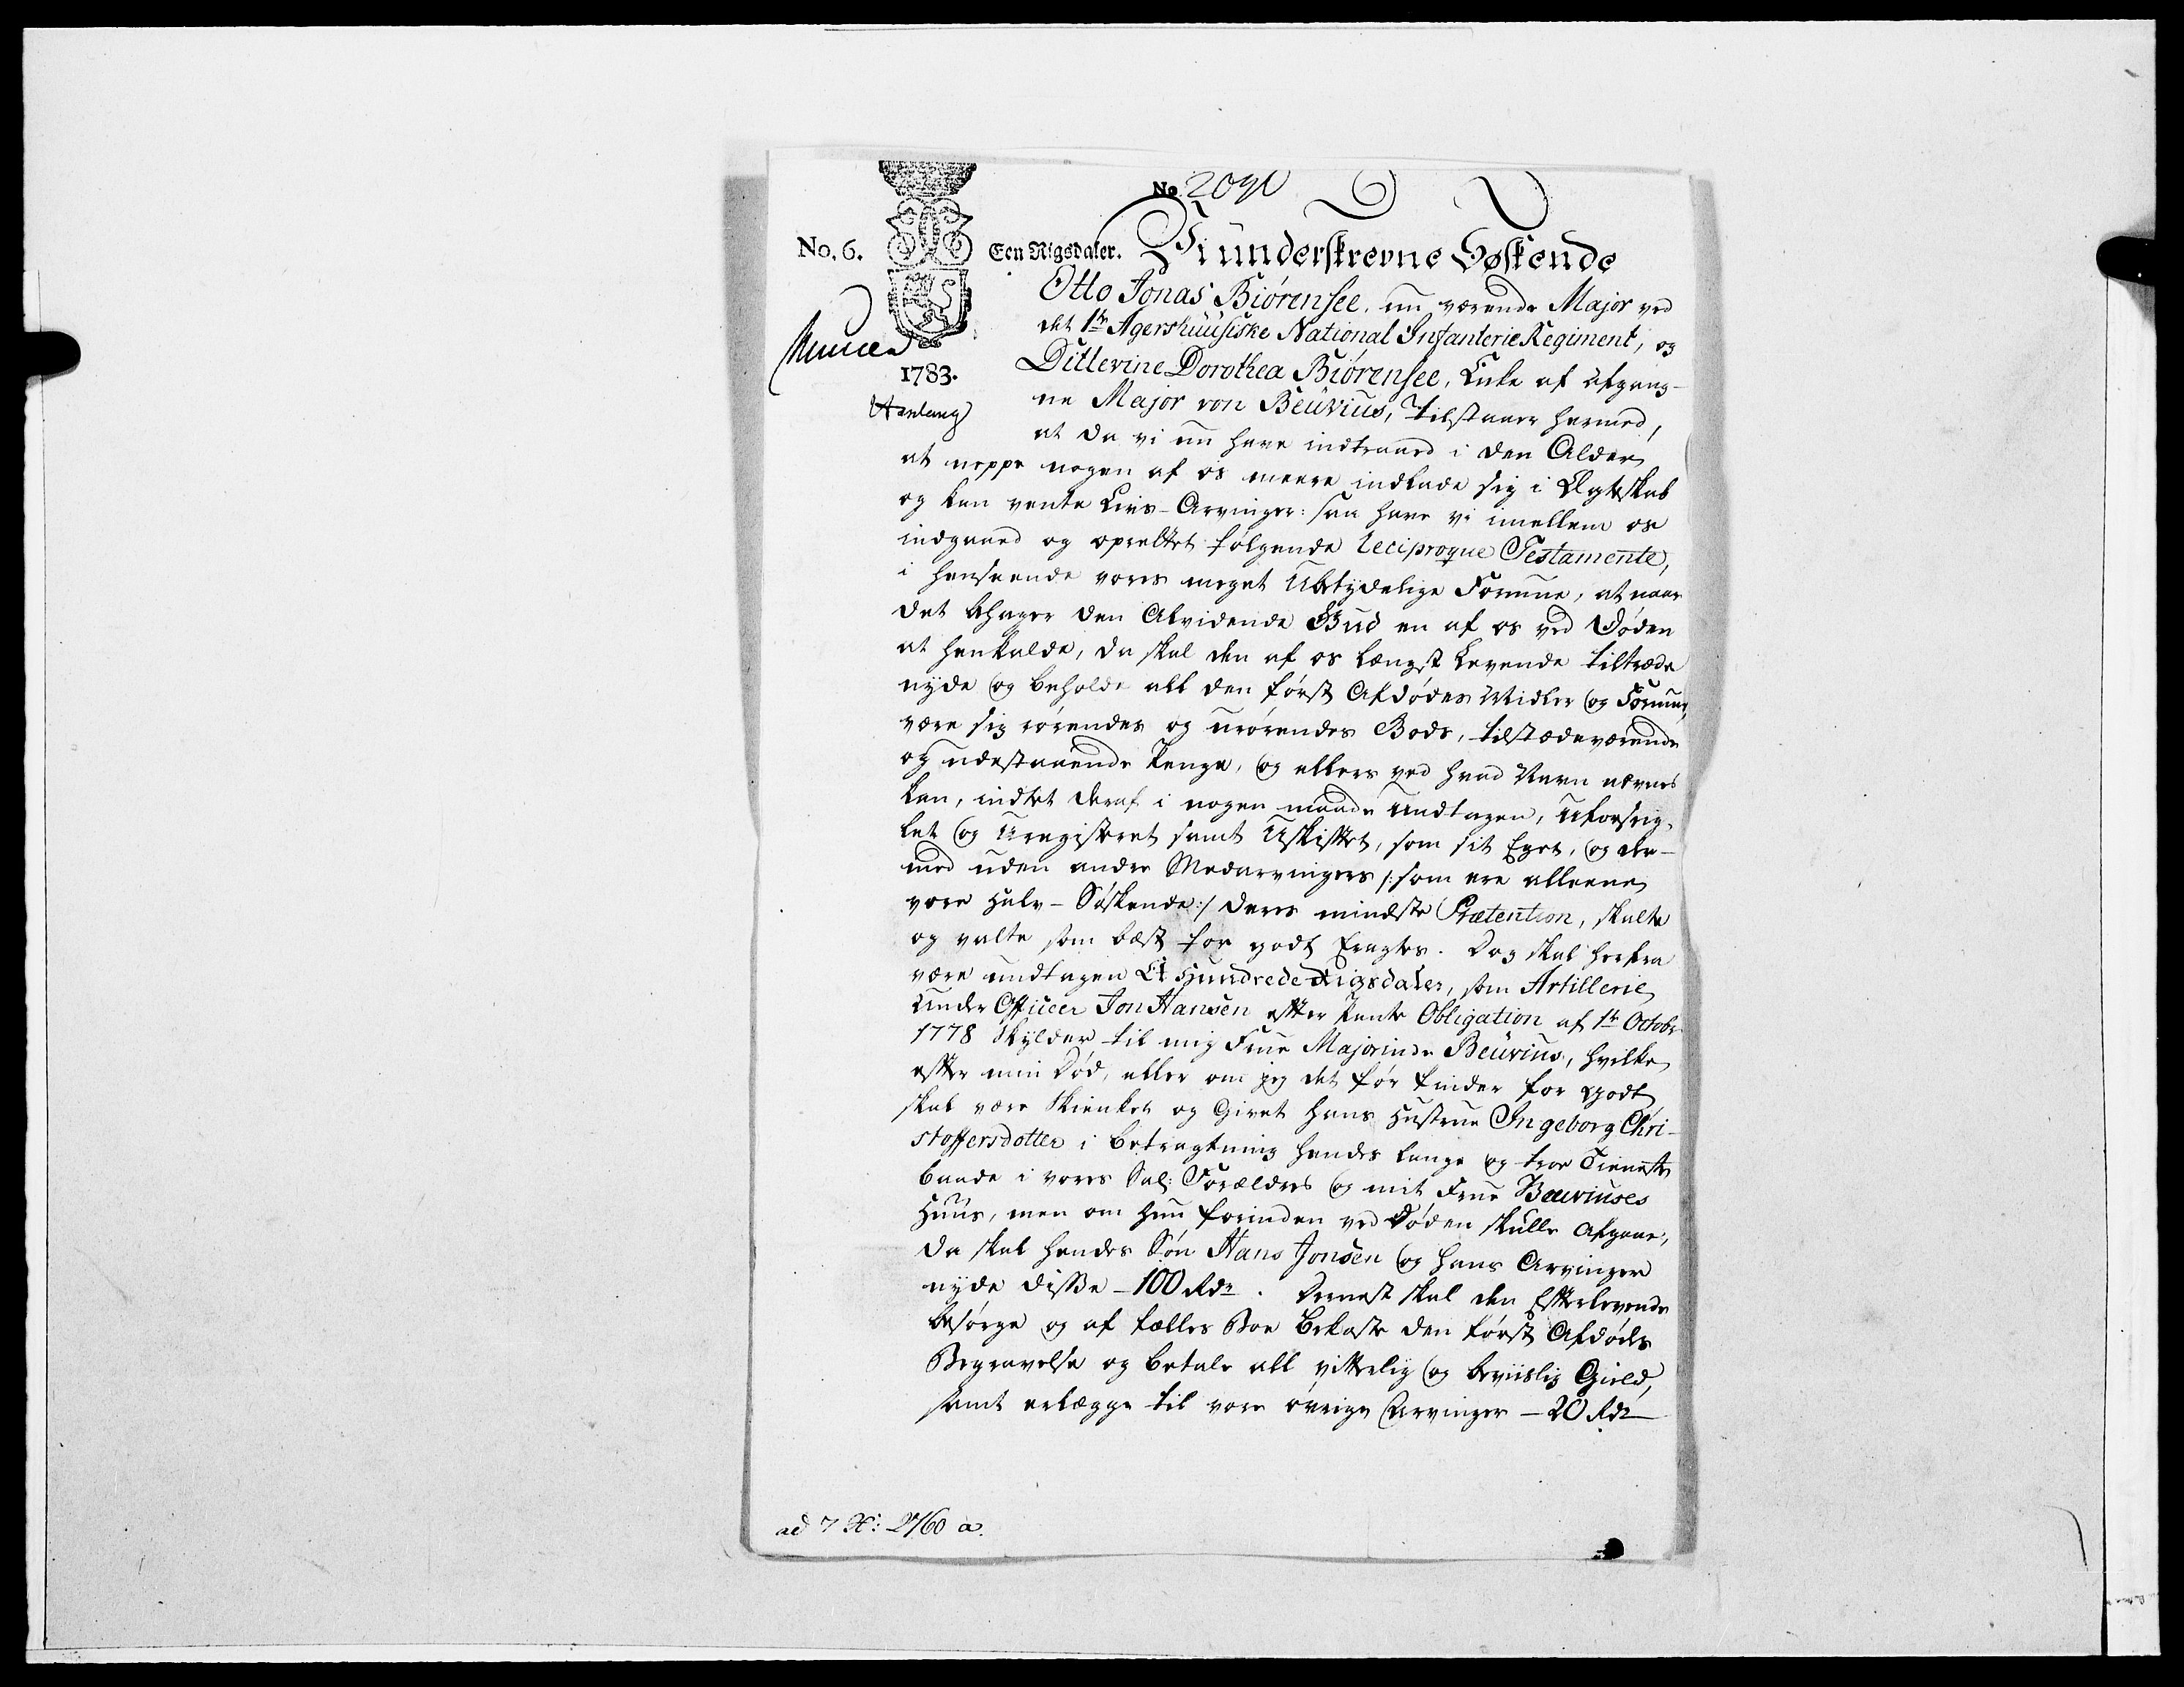 No. 2090
No. 6.
Een Rigsdaler.
1783.
Vi underskrevne Søskende
Otto Jonas Biørensee, nu værende Major ved
det 1te Agershuusiske National Infanterie Regiment, og
Ditlevine Dorothea Biørensee, Enke af afgang-
ne Major von Beüvius, tilstaaer hermed,
at da vi nu have indtraad i den Alder
at neppe nogen af os meere indlade sig i Ægteskab
og kan vente Livs-Arvinger: saa have vi imellem os
indgaaed og oprettet følgende reciproque Testamente,
i henseende vores meget Ubetydelige Formue, at naar
det behager den Alvidende Gud en af os ved Døden
at henkalde, da skal den af os længst Levende tiltræde
nyde og beholde all den først Afdødes Midler og Formue,
være sig rørendes og urørendes Gods, tilstædeværende
og udestaaende Penge, og ellers ved hvad Navn nævnes
kan, indtet deraf i nogen maade Undtagen, Uforseig-
let og Uregisteret samt Uskiftet, som sit Eget, og der-
med uden andre Medarvingers /: som ere alleene
vore Halv-Søskende :/ deres mindste Prætention, skalte
og valte som bæst for godt Eragtes. Dog skal herfra
være undtagen Et Hundrede Rigsdaler, som Artillerie
Under Officeer Jon Hansen efter Pante Obligation af 1te Octobr
1778 skylder til mig Frue Majorinde Beüvius, hvilke
efter min Død, eller om jeg det før finder for godt
skal være Skienket og Givet hans Hustrue Ingeborg Chri-
stoffersdotter i betragtning hendes lange og troe Tieneste
baade i vores Sal: Forældres og mit Frue Beuviuses
Huus, men om hun forinden ved Døden skulle Afgaae,
da skal hendes Søn Hans Jonsen og hans Arvinger
nyde disse - 100 Rdr. Dernest skal den Efterlevende
besørge og af fælles Boe Bekoste den først Afdødes
Begravelse og betale all vitterlig og beviislig Gield,
samt erlægge til vore øvrige Arvinger - 20 Rdr
ad 7 2760 a.